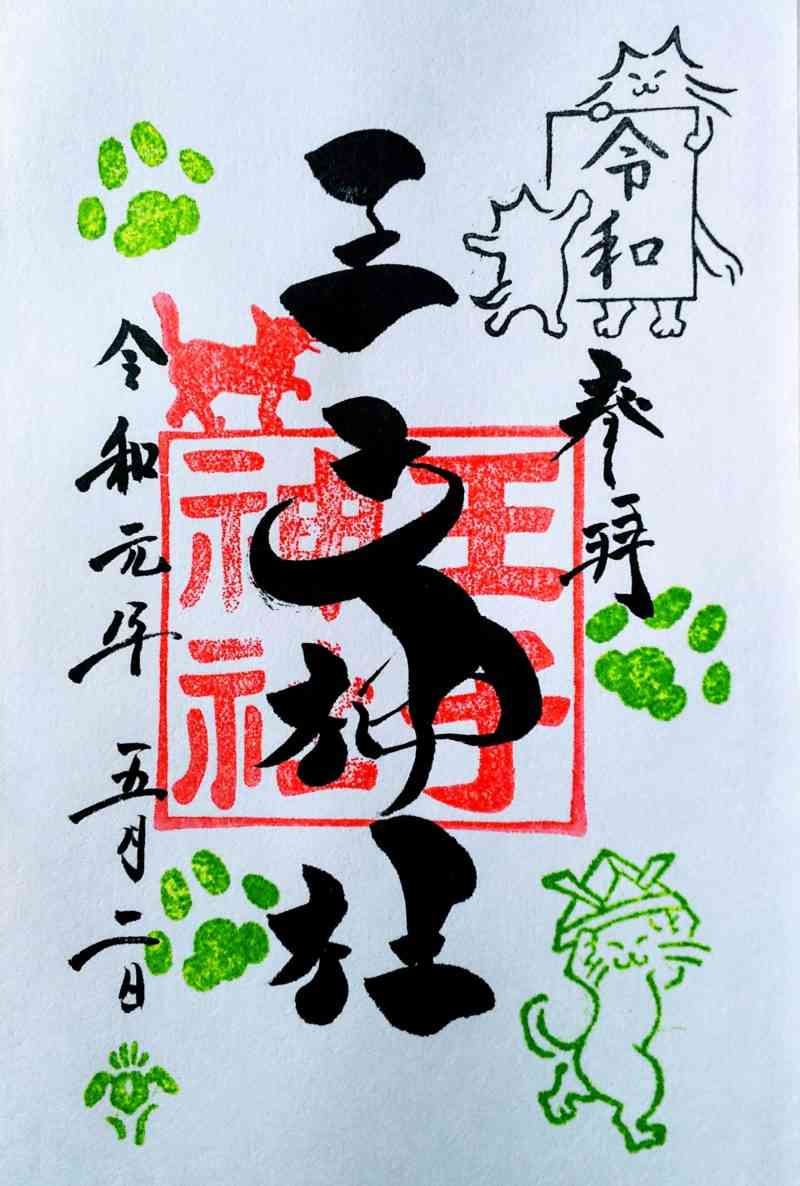 令和
奉拝
王子神社
王子
神社
令和元年五月二日